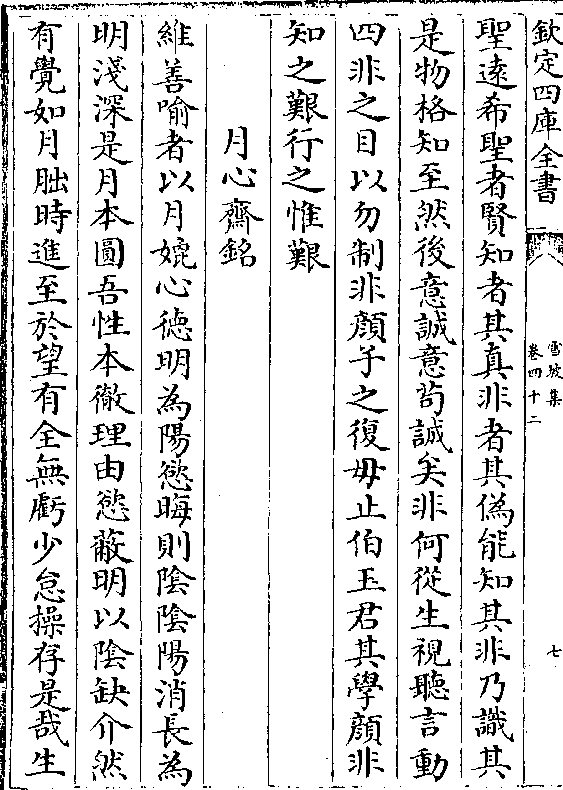 欽定四庫全書
雪坡集
卷四十二
七
聖遠希聖者賢知者其真非者其偽能知其非乃識其
是物格知至然後意誠意茍誠矣非何從生視聽言動
四非之目以勿制非顔子之復毋止伯玉君其學顔非
知之艱行之惟艱
月心齋銘
維善喻者以月媲心德明為陽慾晦則陰陰陽消長為
明淺深是月本圓吾性本徹理由慾蔽明以陰缺介然
有覺如月朏時進至於望有全無虧少怠操存是哉生